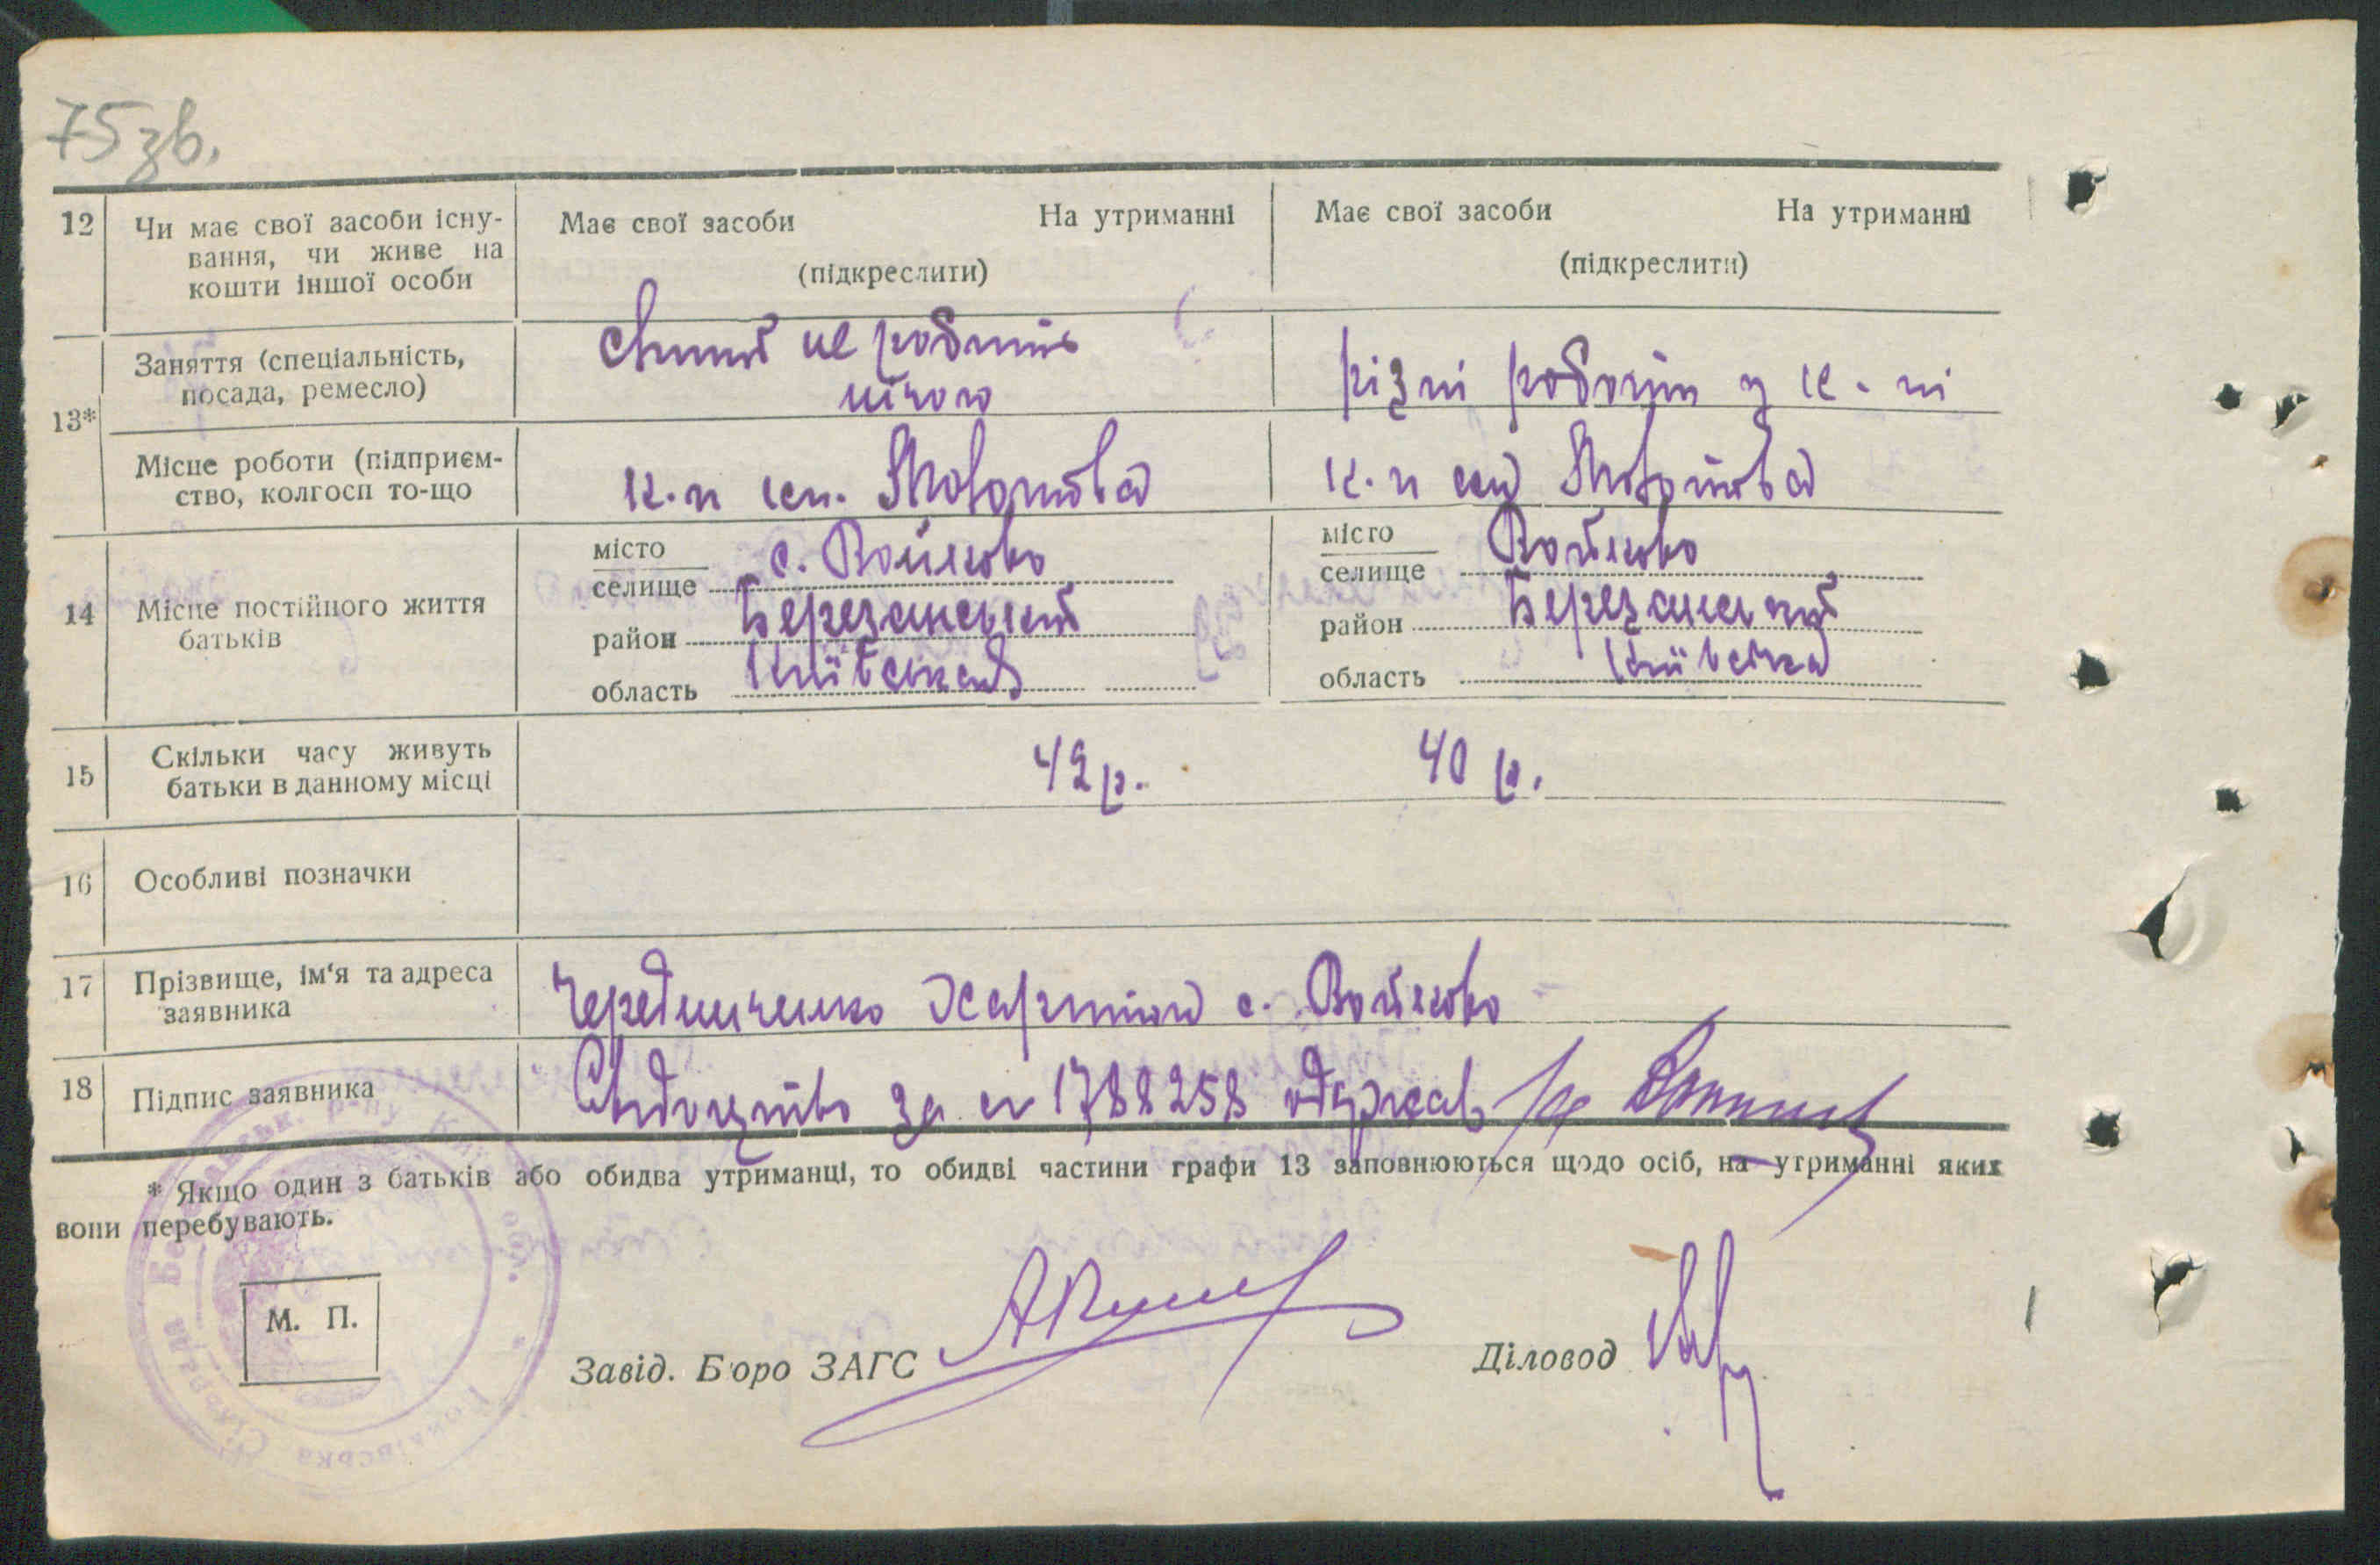 75 зв.
12 Чи має свої засоби існу- Має свої засоби На утриманні Має свої засоби На утриманні
вання, чи живе на
кошти іншої особи (підкреслити) (підкреслити)
Заняття (спеціальність, не робить різні роботи у к-пі
посада, ремесло) нічого
13*
Місце роботи (підприєм- к-п ім. Молотова к-п ім Молотова
ство, колгосп то-що
14 Місце постійного життя
батьків
місто
селище с. Войково
район Березанський
область Київська
місто
селище Войково
район Березанський
область Київська
15 Скільки часу живуть 42 р. 40 р.
батьки в данному місці
16 Особливі позначки
17 Прізвище, ім'я та адреса Чередниченко с. Войково
заявника
18 Підпис заявника за № 1788258 одержав
* Якщо один з батьків або обидва утриманці, то обидві частини графи 13 заповнюються щодо осіб, на утриманні яких
вони перебувають.
М. П.
Завід. Бюро ЗАГС
Діловод